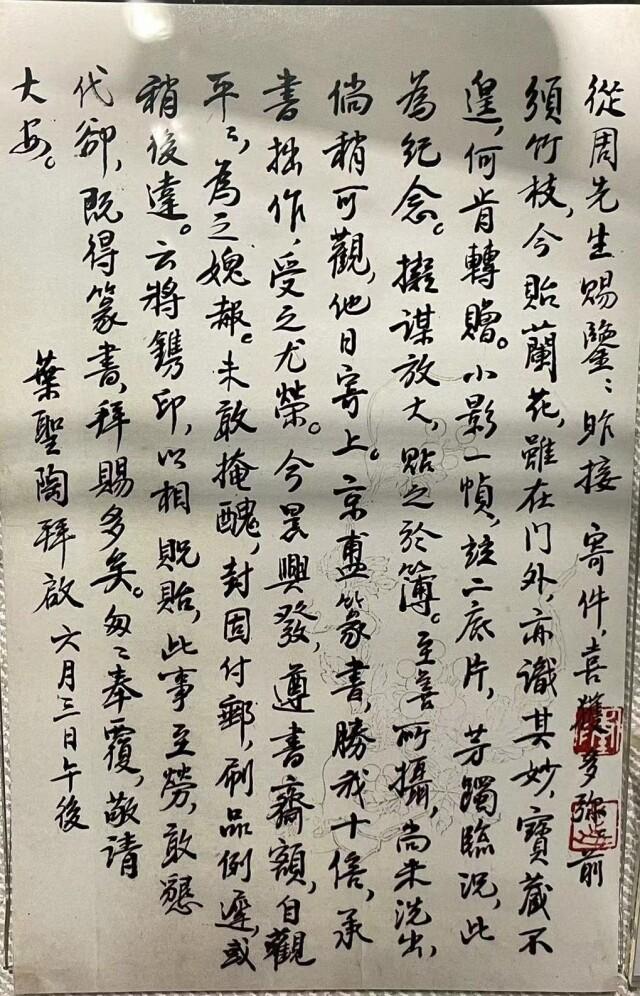 從周先生賜鑒：昨接　寄件，喜獲多珍，前
須竹枝，今貽蘭花，雖在门外，亦識其妙，寶藏不
遑，何肯轉贈。小影一幀，玆二底片，芳躅臨況，此
為紀念。擬謀放大，貼之於簿。至善所攝，尚未洗出，
倘稍可觀，他日寄上。京盙篆書，勝我十倍，承
書拙作，受之尤榮。今晨興發，遵書齋額，自觀
平平，為之媿赧。未敢掩醜，封固付郵，刷品例遲，或
稍後達。云將鐫印，以相貺貽，此事至勞，敢懇
代卻，既得篆書，拜賜多矣。匆匆奉覆，敬请
大安。
葉聖陶拜啟　六月三日午後